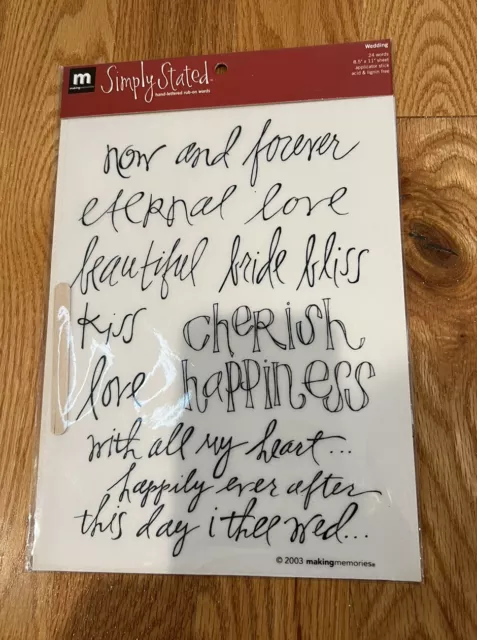 m
makingmemories
Simply Stated
hand-lettered rub-on words
Wedding
24 words
8.5" x 11" sheet
applicable stick
acid & lignin free
now and forever
eternal love
beautiful bride bliss
kiss cherish
love happiness
with all my heart...
happily ever after
this day i thee wed...
© 2003 makingmemories®